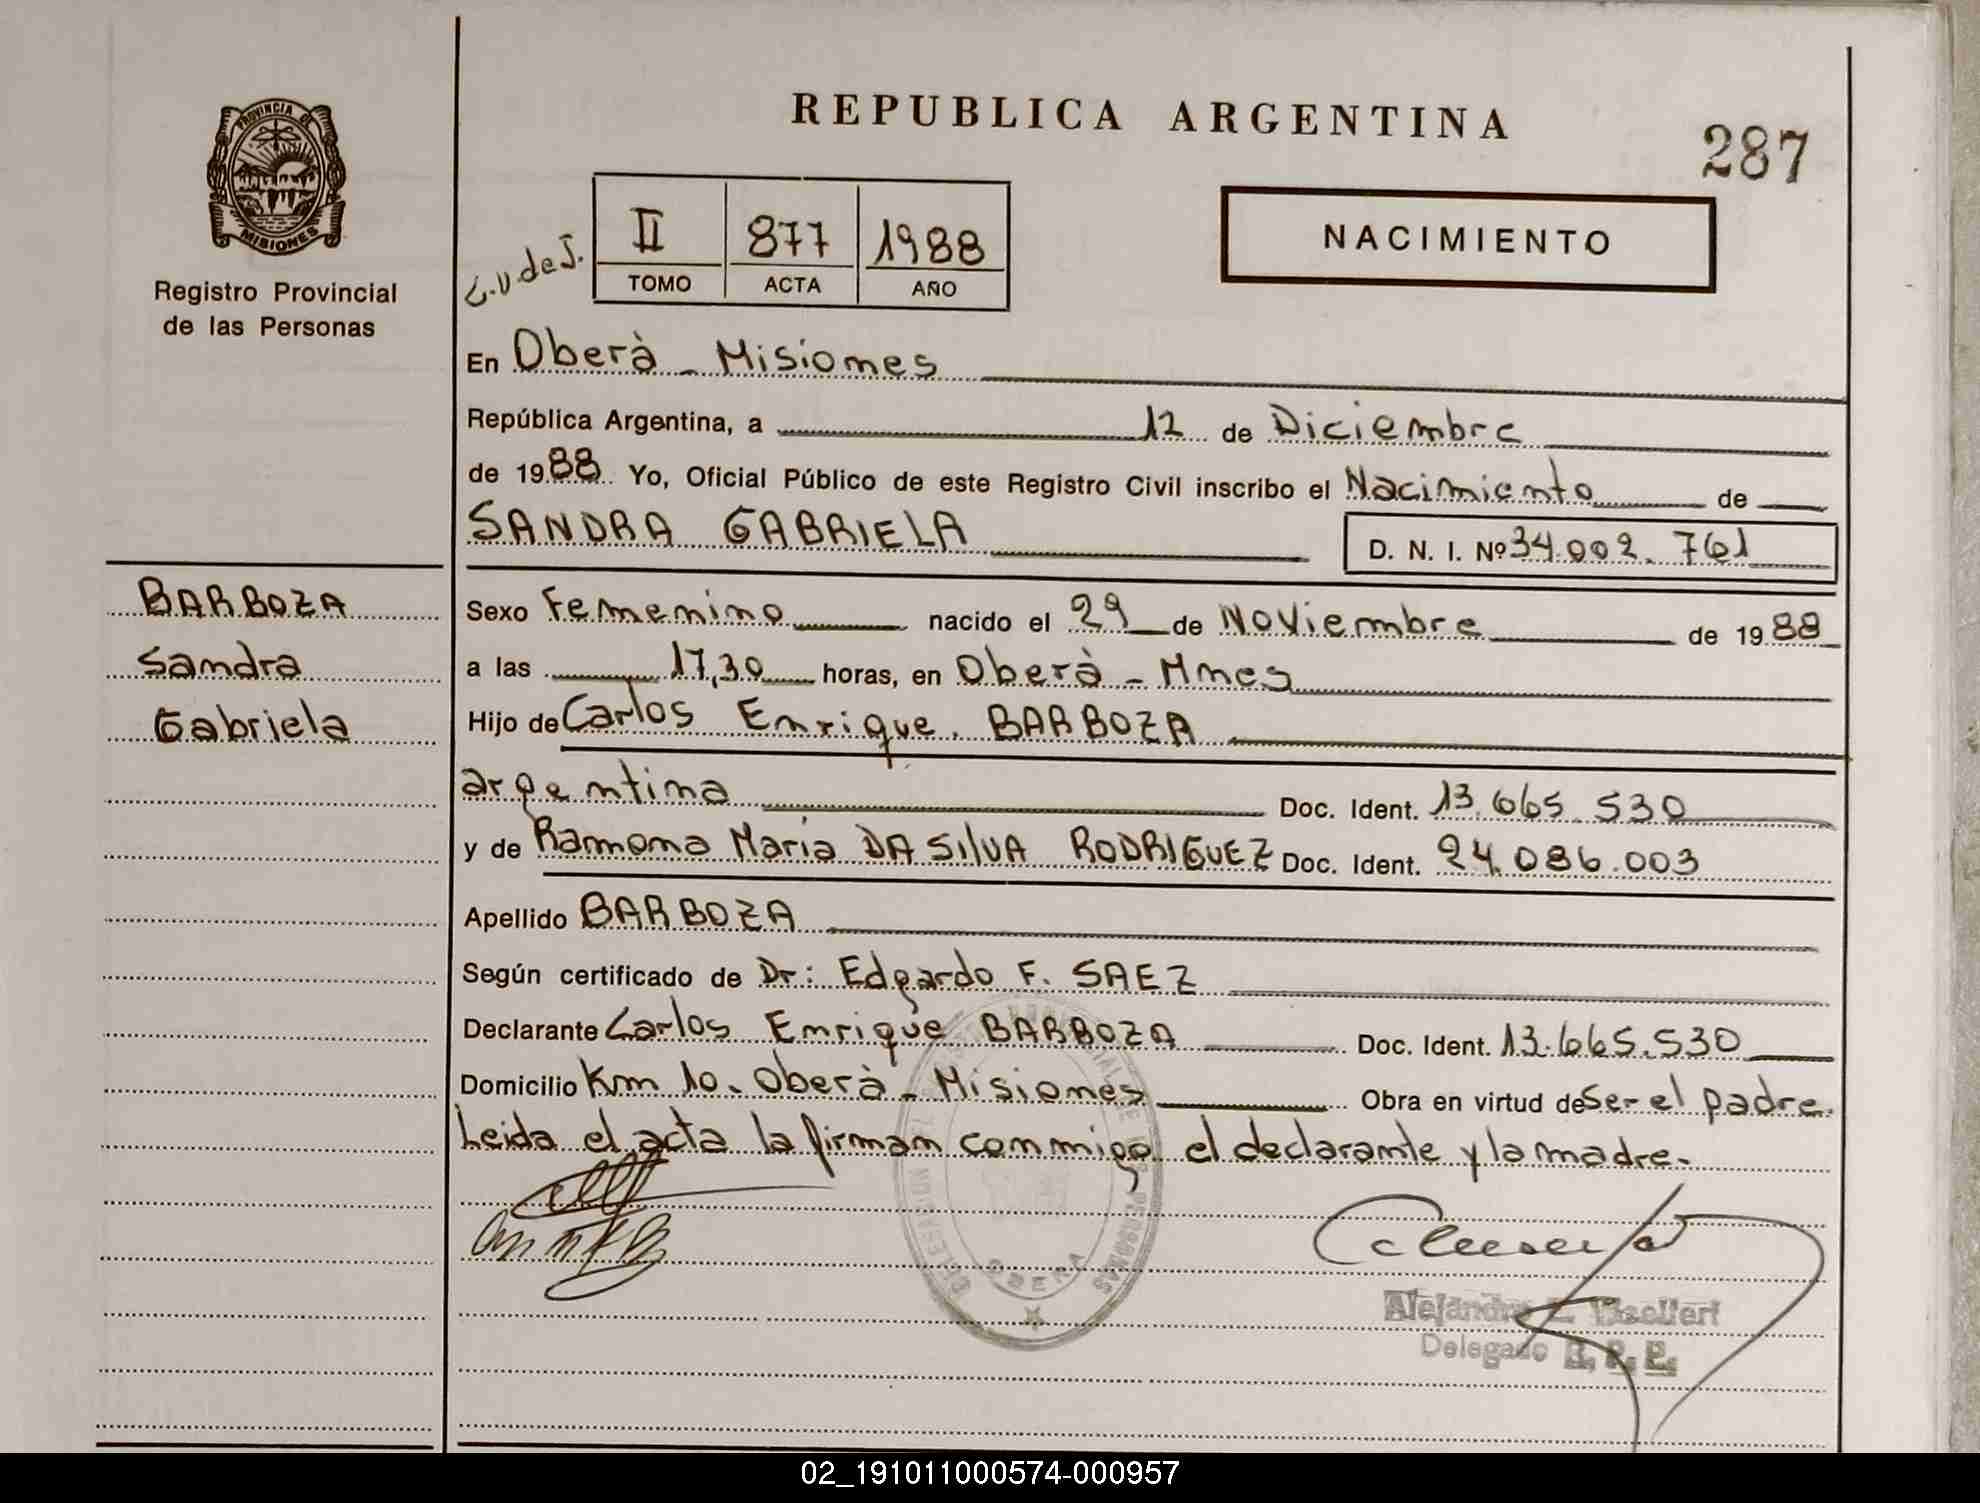 REPUBLICA ARGENTINA
287
PROVINCIA DE
MISIONES
Registro Provincial
de las Personas
L.U. de J.
II 877 1988
TOMO ACTA AÑO
NACIMIENTO
En Oberà - Misiones
República Argentina, a 12 de Diciembre
de 1988 Yo, Oficial Público de este Registro Civil inscribo el Nacimiento de
SANDRA GABRIELA
D. N. I. Nº 34.002.761
BARBOZA
Sandra
Gabriela
Sexo Femenino nacido el 29 de Noviembre de 1988
a las 17,30 horas, en Oberà - Mnes
Hijo de Carlos Enrique. BARBOZA
argentina Doc. Ident. 13.665.530
y de Ramona Maria DA SILVA RODRIGUEZ Doc. Ident. 24.086.003
Apellido BARBOZA
Según certificado de Dr: Edgardo F. SAEZ
Declarante Carlos Enrique BARBOZA Doc. Ident. 13.665.530
Domicilio Km 10. Oberà - Misiones Obra en virtud de Ser el padre.
Leida el acta la firman conmigo el declarante y la madre.
OBERA
Delegado R. P. P.
02_191011000574-000957